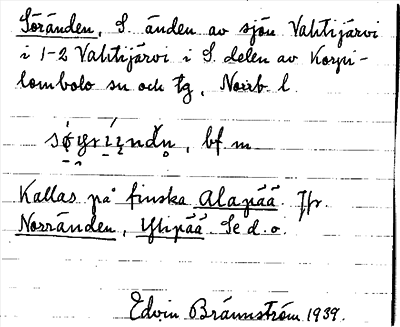 Söränden, S. änden av sjön Vahtijärvi
i 1-2 Vahtijärvi i S. delen av Korpi-
lombolo sn och tg, Norrb. l.
bf. m.
Kallas på finska Alapää. Jfr.
Norränden, Ylipää. Se d. o.
Edvin Brännström 1939.